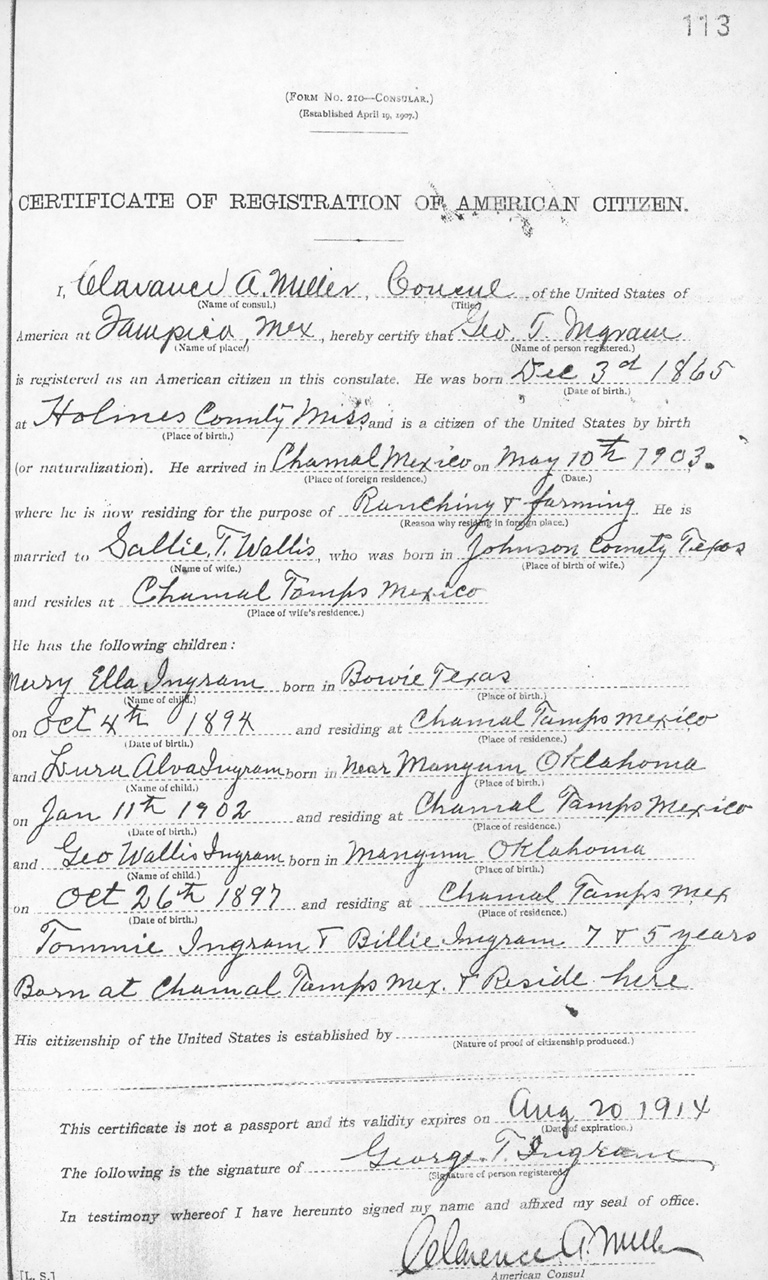 113
(FORM NO. 210—CONSULAR.)
(Established April 19, 1907.)
CERTIFICATE OF REGISTRATION OF AMERICAN CITIZEN.
I, Clarance A. Miller, Consul of the United States of
(Name of consul.) (Title)
America at Tampico, Mex, hereby certify that Geo. T. Ingram
(Name of place) (Name of person registered.)
is registered as an American citizen in this consulate. He was born Dec 3rd 1865
(Date of birth.)
at Holmes County Miss and is a citizen of the United States by birth
(Place of birth.)
(or naturalization). He arrived in Chamal Mexico on May 10th 1903.
(Place of foreign residence.) (Date.)
where he is now residing for the purpose of Ranching & farming. He is
(Reason why residing in foreign place.)
married to Sallie. T. Wallis, who was born in Johnson County Texas
(Name of wife.) (Place of birth of wife.)
and resides at Chamal Tamps Mexico
(Place of wife's residence.)
He has the following children:
Mary Ella Ingram born in Bowie Texas
(Name of child.) (Place of birth.)
on Oct 4th 1894 and residing at Chamal Tamps Mexico
(Date of birth.) (Place of residence.)
and Lura Alva Ingram born in near Mangum Oklahoma
(Name of child.) (Place of birth.)
on Jan 11th 1902 and residing at Chamal Tamps Mexico
(Date of birth.) (Place of residence.)
and Geo Wallis Ingram born in Mangum Oklahoma
(Name of child.) (Place of birth.)
on Oct 26th 1897 and residing at Chamal Tamps Mex
(Date of birth.) (Place of residence.)
Tommie Ingram & Billie Ingram 7 & 5 years
Born at Chamal Tamps Mex. & Reside here
His citizenship of the United States is established by
(Nature of proof of citizenship produced.)
This certificate is not a passport and its validity expires on Aug 20 1914
(Date of expiration.)
The following is the signature of George. T. Ingram
(Signature of person registered)
In testimony whereof I have hereunto signed my name and affixed my seal of office.
Clarence A. Miller
American Consul
[L. S.]